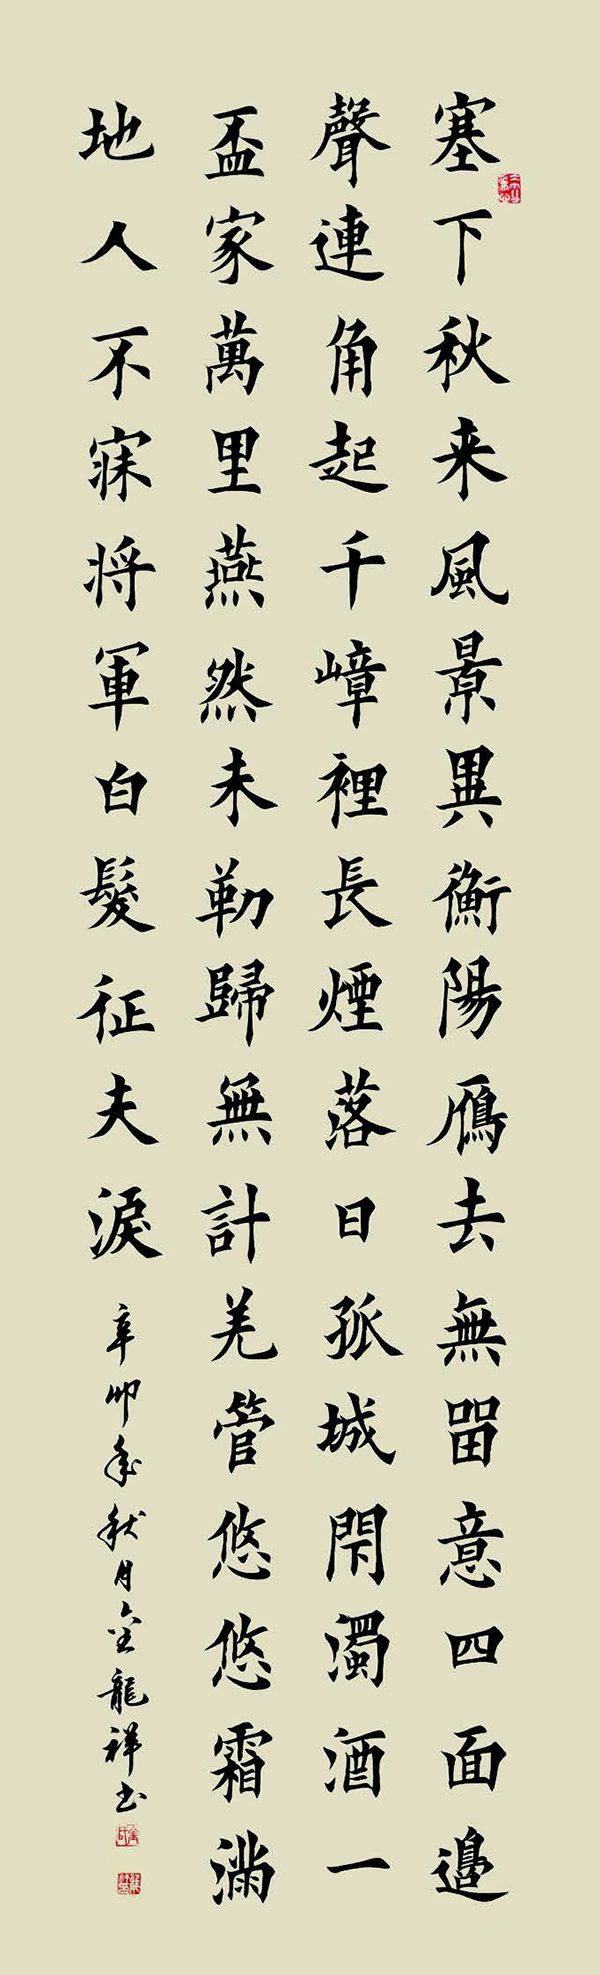 塞下秋来風景異衡陽鴈去無留意四面邊
聲連角起千嶂裡長煙落日孤城閇濁酒一
盃家萬里燕然未勒歸無計羌管悠悠霜滿
地人不寐将軍白髮征夫淚
辛卯年秋月金龍祥书